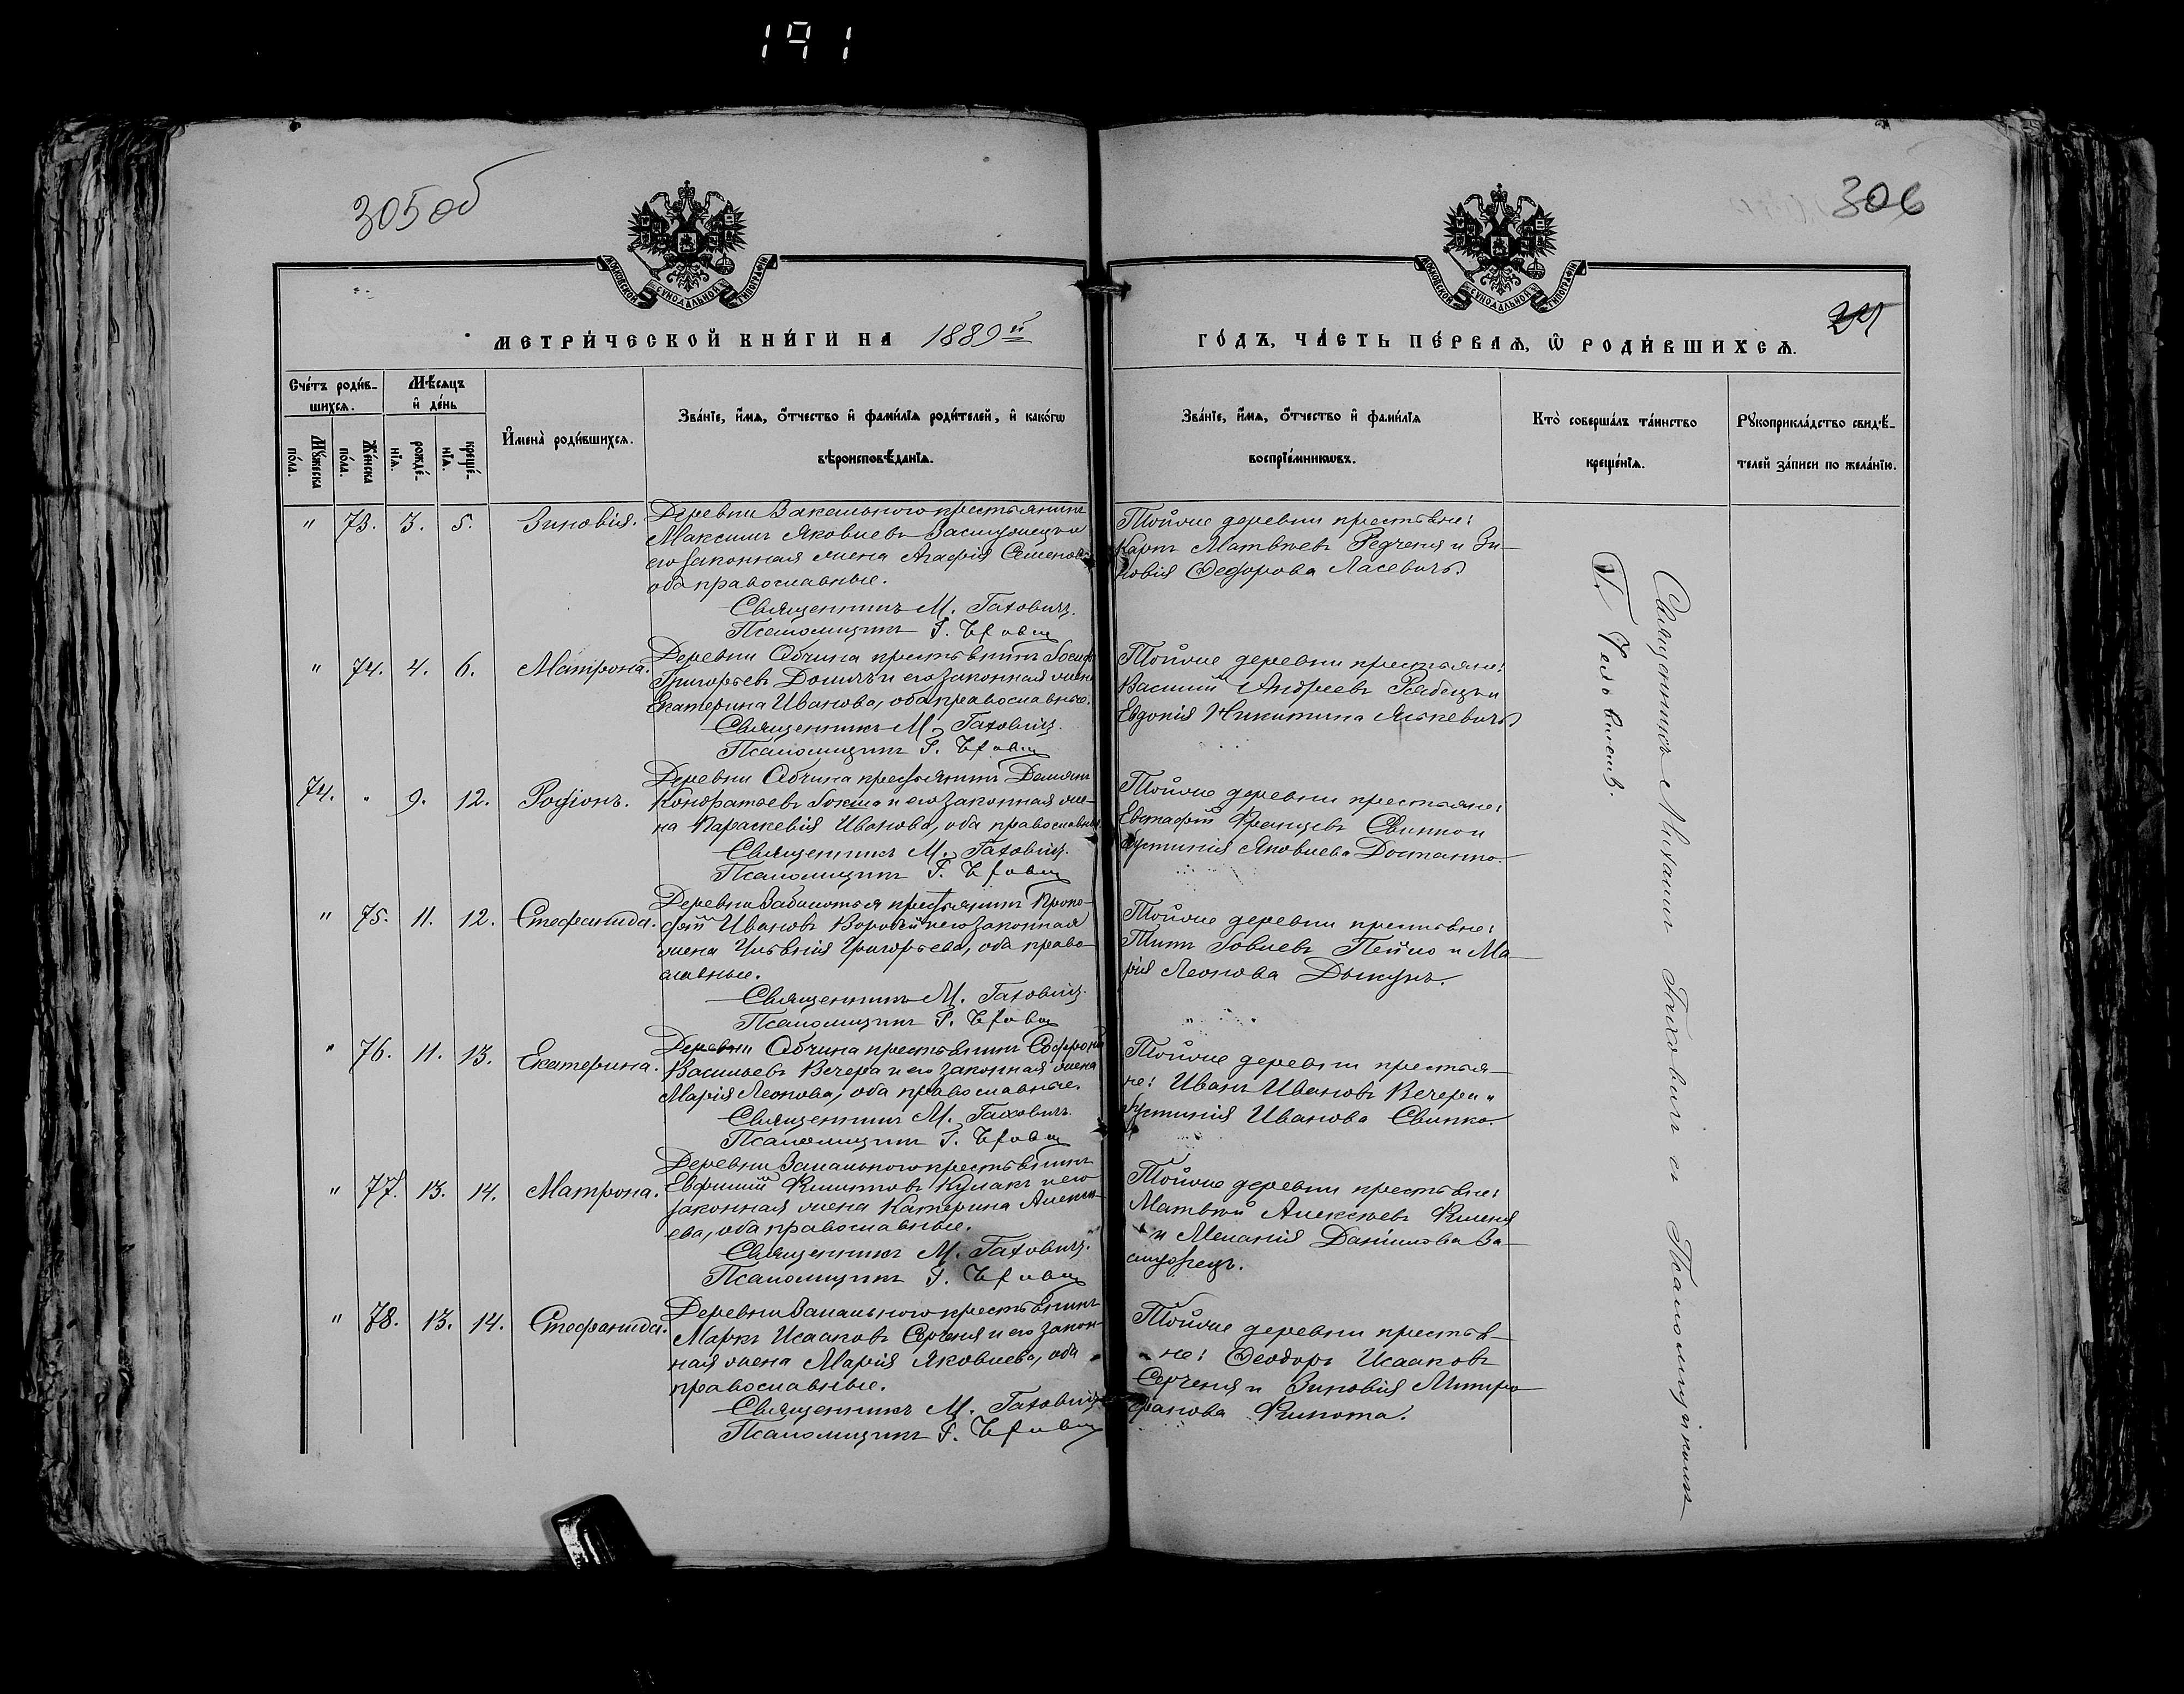 191
305 об
306
МОСКОВСКОЙ СУНОДАЛЬНОЙ ТИПОГРАФІИ
МОСКОВСКОЙ СУНОДАЛЬНОЙ ТИПОГРАФІИ
МЕТРИ́ЧЕСКОЙ КНИ́ГИ НА 1889й
ГО́ДЪ, ЧА́СТЬ ПЕ́РВАЯ, Ѡ РОДИ́ВШИХСЯ.
Сче́тъ роди́в-
шихся.
Му́жеска
по́ла.
Же́нска
по́ла.
Мѣ́сяцъ
и҆ де́нь
рожде́-
нїя.
креще́-
нїя.
И҆мена̀ роди́вшихся.
Зва́нїе, и҆́мя, ѻ҆́тчество и҆ фами́лїя роди́телей, и҆ како́гѡ
вѣроисповѣ́данїя.
Зва́нїе, и҆́мя, ѻ҆́тчество и҆ фами́лїя
воспрїе́мникѡвъ.
Кто̀ соверша́лъ та́инство
креще́нїя.
Рꙋкоприкла́дство свидѣ́-
телей за́писи по жела́нїю.
" 73. 3. 5. Зиновія.
Деревни Закальнаго крестьянинъ
Максимъ Яковлевъ и
его законная жена Агафія Семенова
оба православные.
Священникъ М. Гахович.
Псаломщикъ Г.
Тойже деревни крестьяне:
Карпъ Матвѣевъ Редченя и Зи-
новія Ѳедорова Ласевичъ.
" 74. 4. 6. Матрона.
Деревни Обчина крестьянинъ Іосифъ
Григорьевъ и его законная жена
Екатерина Иванова, оба православные.
Священникъ М. Гахович.
Псаломщикъ Г.
Тойже деревни крестьяне:
Василій Андреевъ Рябецъ и
Евдокія Никитина Янкевичъ
74. " 9. 12. Родіонъ.
Деревни Обчина крестьянинъ Демьянъ
Кондратьевъ и его законная же-
на Параскевія Иванова, оба православные
Священникъ М. Гахович.
Псаломщикъ Г.
Тойже деревни крестьяне:
Евстафій Францевъ Свинко и
Іустинія Яковлева Достанко.
" 75. 11. 12. Стефанида.
Деревни Заболотья крестьянинъ Проко-
фій Ивановъ Воробей и его законная
жена Ульянія Григорьева, оба право-
славные.
Священникъ М. Гахович.
Псаломщикъ Г.
Тойже деревни крестьяне:
Титъ Іовлевъ Пейло и Ма-
рія Леонова Дыкунъ.
" 76. 11. 13. Екатерина.
Деревни Обчина крестьянинъ Софроній
Васильевъ Вечера и его законная жена
Марія Леонова, оба православные.
Священникъ М. Гаховичъ.
Псаломщикъ Г.
Тойже деревни крестья-
не: Иванъ Ивановъ Вечера и
Іустинія Иванова Свинко.
" 77. 13. 14. Матрона.
Деревни Закальнаго крестьянинъ
Евфимій Филиповъ Кулакъ и его
законная жена Катерина Алексѣ-
ева, оба православные.
Священникъ М. Гахович.
Псаломщикъ Г.
Тойже деревни крестьяне:
Матвѣй Алексѣевъ
и Меланія Данилова
" 78. 13. 14. Стефанида.
Деревни Закальнаго крестьянинъ
Маркъ Исааковъ Серченя и его закон-
ная жена Марія Яковлева, оба
православные.
Священникъ М. Гахович.
Псаломщикъ Г.
Тойже деревни крестья-
не: Ѳеодоръ Исааковъ
Серченя и Зиновія Митро-
фанова
Священникъ Михаилъ Гаховичъ съ Псаломщикомъ
Г.